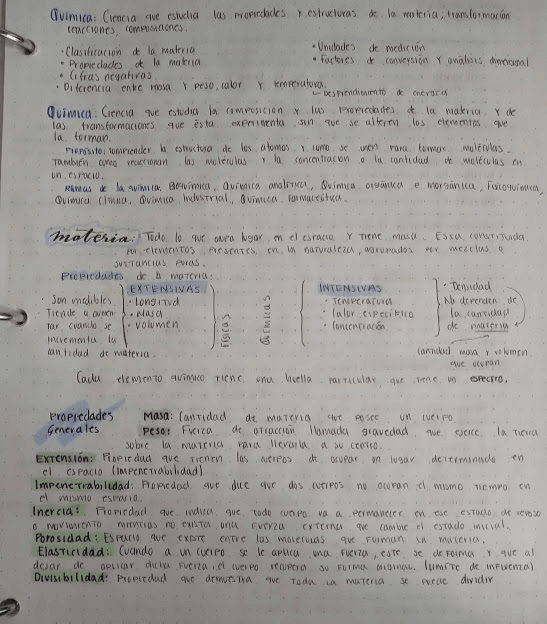 Química: Ciencia que estudia las propiedades y estructuras de la materia, transformación
reacciones, composiciones.
· Clasificación de la materia
· Propiedades de la materia
· Cifras negativas
· Diferencia entre masa y peso, calor y temperatura.
· Unidades de medición
· Factores de conversión y análisis dimensional
Desprendimiento de energía
Química: Ciencia que estudia la composición y las propiedades de la materia y de
las transformaciones que ésta experimenta sin que se alteren los elementos que
la forman.
Propósito: comprender la estructura de los átomos y como se unen para formar moléculas.
También como reaccionan las moléculas y la concentración o la cantidad de moléculas en
un espacio.
Ramas de la química: Bioquímica, Química analítica, Química orgánica e inorgánica, Fisicoquímica,
Química clínica, Química industrial, Química farmaceútica.
materia: Todo lo que ocupa lugar en el espacio y tiene masa. Essa constituida
por elementos presentes en la naturaleza, agrupados por mezclas o
sustancias puras.
Propiedades de la materia:
· Son medibles
· Tiende a aumen
tar cuando se
incrementa la
cantidad de materia.
EXTENSIVAS
· Longitud
· Masa
· Volumen
Físicas
Químicas
INTENSIVAS
· Temperatura
· Calor específico
· Concentración
· Densidad
No dependen de
la cantidad
de materia
Cantidad masa y volumen
que ocupan
Cada elemento químico tiene una huella particular que tiene un espectro.
Propiedades
Generales
Masa: Cantidad de materia que posee un cuerpo
Peso: Fuerza de atracción llamada gravedad que ejerce la tierra
sobre la materia para llevarla a su centro.
Extensión: Propiedad que tienen los cuerpos de ocupar un lugar determinado en
el espacio (Impenetrabilidad)
Impenetrabilidad: Propiedad que dice que dos cuerpos no ocupan el mismo tiempo en
el mismo espacio.
Inercia: Propiedad que indica que todo cuerpo va a permanecer en ese estado de reposo
o movimiento mientras no exista una fuerza externa que cambie el estado inicial.
Porosidad: Espacio que existe entre las moléculas que forman la materia.
Elasticidad: Cuando a un cuerpo se le aplica una fuerza, este se deforma y que al
dejar de aplicar dicha fuerza, el cuerpo recupera su forma original. (límite de influenza)
Divisibilidad: Propiedad que demuestra que toda la materia se puede dividir